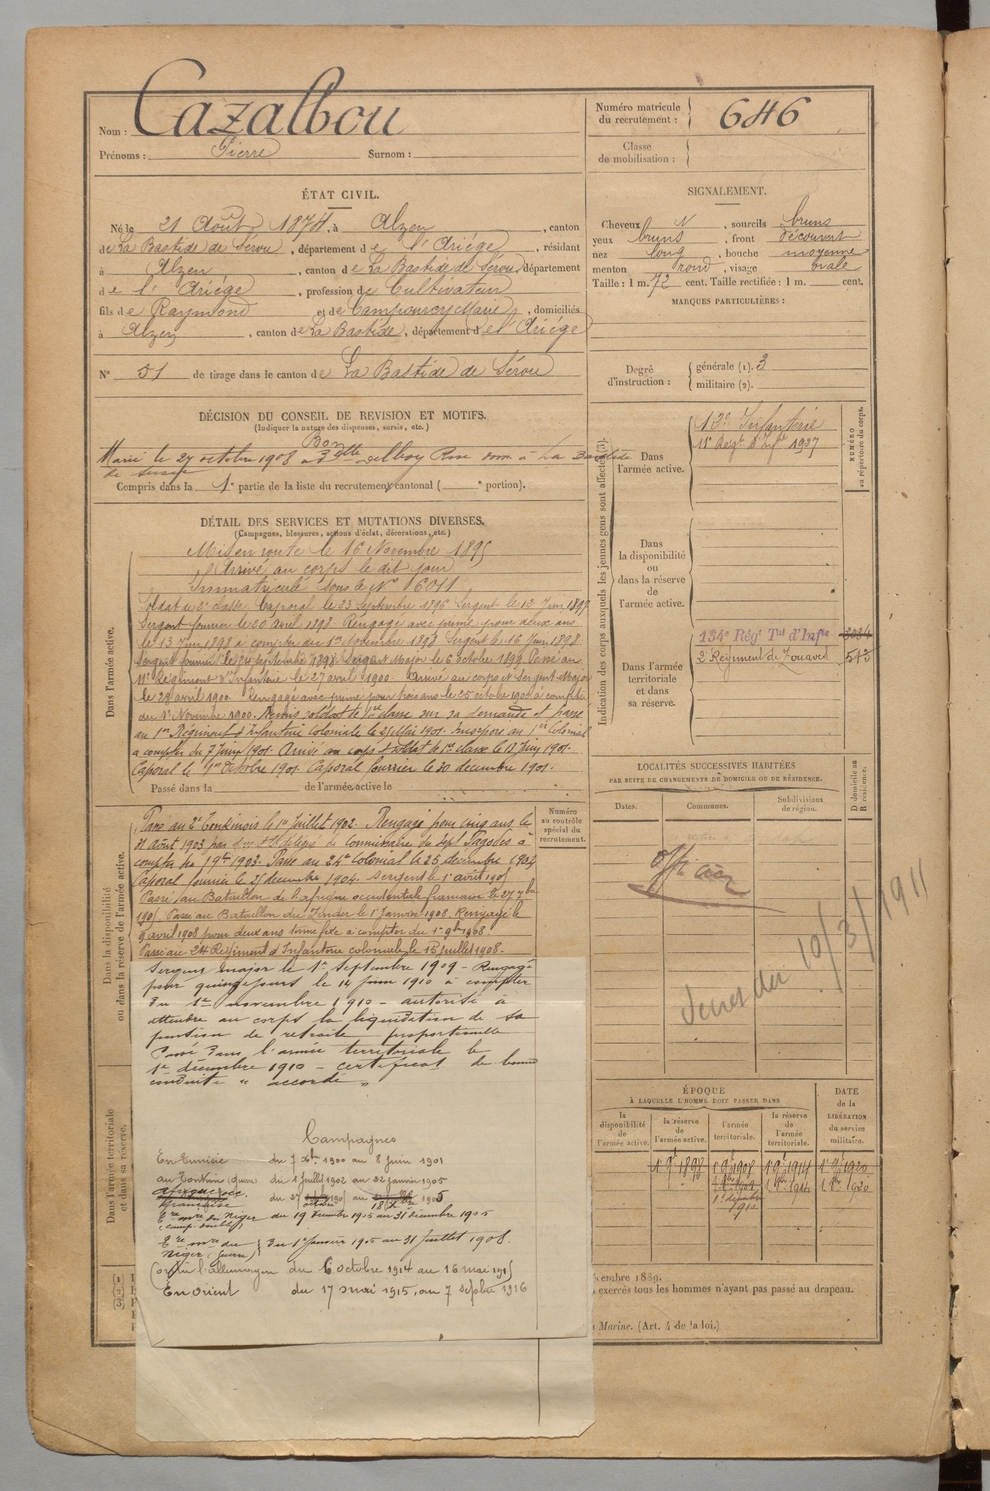 Nom : Cazalbou
Prénoms : Pierre Surnom :
Numéro matricule du recrutement : 646
Classe de mobilisation :
ÉTAT CIVIL.
Né le 21 Août 1874, à Alzen, canton
de La Bastide de Sérou, département de l'Ariège, résidant
à Alzen, canton de La Bastide de Sérou, département
de l'Ariège, profession de Cultivateur
fils de Raymond et de Campourcy Marie, domiciliés
à Alzen, canton de La Bastide, département de l'Ariège
N° 51 de tirage dans le canton de La Bastide de Sérou
SIGNALEMENT.
Cheveux N, sourcils bruns
yeux bruns, front découvert
nez long, bouche moyenne
menton rond, visage ovale
Taille : 1 m. 72 cent. Taille rectifiée : 1 m. cent.
MARQUES PARTICULIÈRES :
Degré d'instruction : générale (1). 3
militaire (2).
DÉCISION DU CONSEIL DE REVISION ET MOTIFS.
(Indiquer la nature des dispenses, sursis, etc.)
Bon
Marié le 27 octobre 1908 à Delle Rose dom. à La Bastide
de Serou
Compris dans la 1e partie de la liste du recrutement cantonal ( e portion).
DÉTAIL DES SERVICES ET MUTATIONS DIVERSES.
(Campagnes, blessures, actions d'éclat, décorations, etc.)
Dans l'armée active.
Mis en route le 16 Novembre 1895
Arrivé au corps le dit jour
Immatriculé sous le N° 16011
Soldat de 2e classe Caporal le 23 Septembre 1896 Sergent le 13 Juin 1897
Sergent fourrier le 20 avril 1898. Rengagé avec prime pour deux ans
le 13 Juin 1898 à compter du 1er Novembre 1898 Sergent le 16 Juin 1898
Sergent fourrier le 24 septembre 1898 Sergent Major le 6 octobre 1899 Passé au
11e Régiment d'Infanterie le 27 avril 1900. Arrivé au corps et Sergent Major
le 29 avril 1900. Rengagé avec prime pour trois ans le 25 octobre 1900 à compter
du 1er Novembre 1900. Remis soldat de 1re classe sur sa demande et passé
au 1er Régiment d'Infanterie Coloniale le 27 Mai 1901. Incorporé au 1er Colonial
à compter du 7 Juin 1901. Arrivé au corps et soldat de 1re classe le 12 Juin 1901.
Caporal le 1er Octobre 1901. Caporal fourrier le 30 décembre 1901.
Passé dans la de l'armée active le
Dans la disponibilité ou dans la réserve de l'armée active.
Numéro au contrôle spécial du recrutement.
Passé au 2e Tonkinois le 1er Juillet 1902. Rengagé pour cinq ans le
21 août 1903 à
compter du 1 9bre 1903. Passé au 24e Colonial le 25 décembre 1904
Caporal fourrier le 25 décembre 1904. Sergent le 1er août 1905
Passé au Bataillon de l'afrique occidentale française le 27 7bre
1905. Passé au Bataillon du Zinder le 1er Janvier 1908. Rengagé le
9 avril 1908 pour deux ans terme fixe à compter du 1er 9bre 1908
Passé au 24 Régiment d'Infanterie coloniale le 15 Juillet 1908.
Sergent major le 1er Septembre 1909 - Rengagé
pour quinze jours le 14 juin 1910 à compter
du 1er novembre 1910 - autorisé à
attendre au corps la liquidation de sa
pension de retraite proportionnelle
Passé dans l'armée territoriale le
1er décembre 1910 - certificat de bonne
conduite "accordé"
Dans l'armée territoriale et dans sa réserve.
Campagnes
En Tunisie du 7 1900 au 8 Juin 1901
au Tonkin (guerre) du 1 Juillet 1902 au 22 janvier 1905
afrique occ. française du 27
Tre mre du Niger (camp. double) du 19 décembre 1905 au 31 décembre 1905
Tre mre du Niger (guerre) du 1er Janvier 1906 au 31 Juillet 1908.
Contre l'allemagne du 6 octobre 1914 au 16 mai 1915
En Orient du 17 mai 1915, au 7 septbre 1916
Indication des corps auxquels les jeunes gens sont affectés (3).
NUMÉRO au répertoire du corps.
Dans l'armée active.
12e Infanterie
11e Régt d'Inft
Dans la disponibilité ou dans la réserve de l'armée active.
Dans l'armée territoriale et dans sa réserve.
134e Régt Tal d'Infie
2e Régiment de Zouaves 543
LOCALITÉS SUCCESSIVES HABITÉES
PAR SUITE DE CHANGEMENTS DE DOMICILE OU DE RÉSIDENCE.
Dates. Communes. Subdivisions de région. D domicile ou R résidence.
Officier
Décret du 19/3/1911
ÉPOQUE
À LAQUELLE L'HOMME DOIT PASSER DANS
la disponibilité de l'armée active. la réserve de l'armée active. l'armée territoriale. la réserve de l'armée territoriale.
DATE de la LIBÉRATION du service militaire.
1 9bre 1898 1 9bre 1908 1 9bre 1914 1 9bre 1920
1er décembre 1910
embre 1889.
exercés tous les hommes n'ayant pas passé au drapeau.
Marine. (Art. 4 de la loi.)